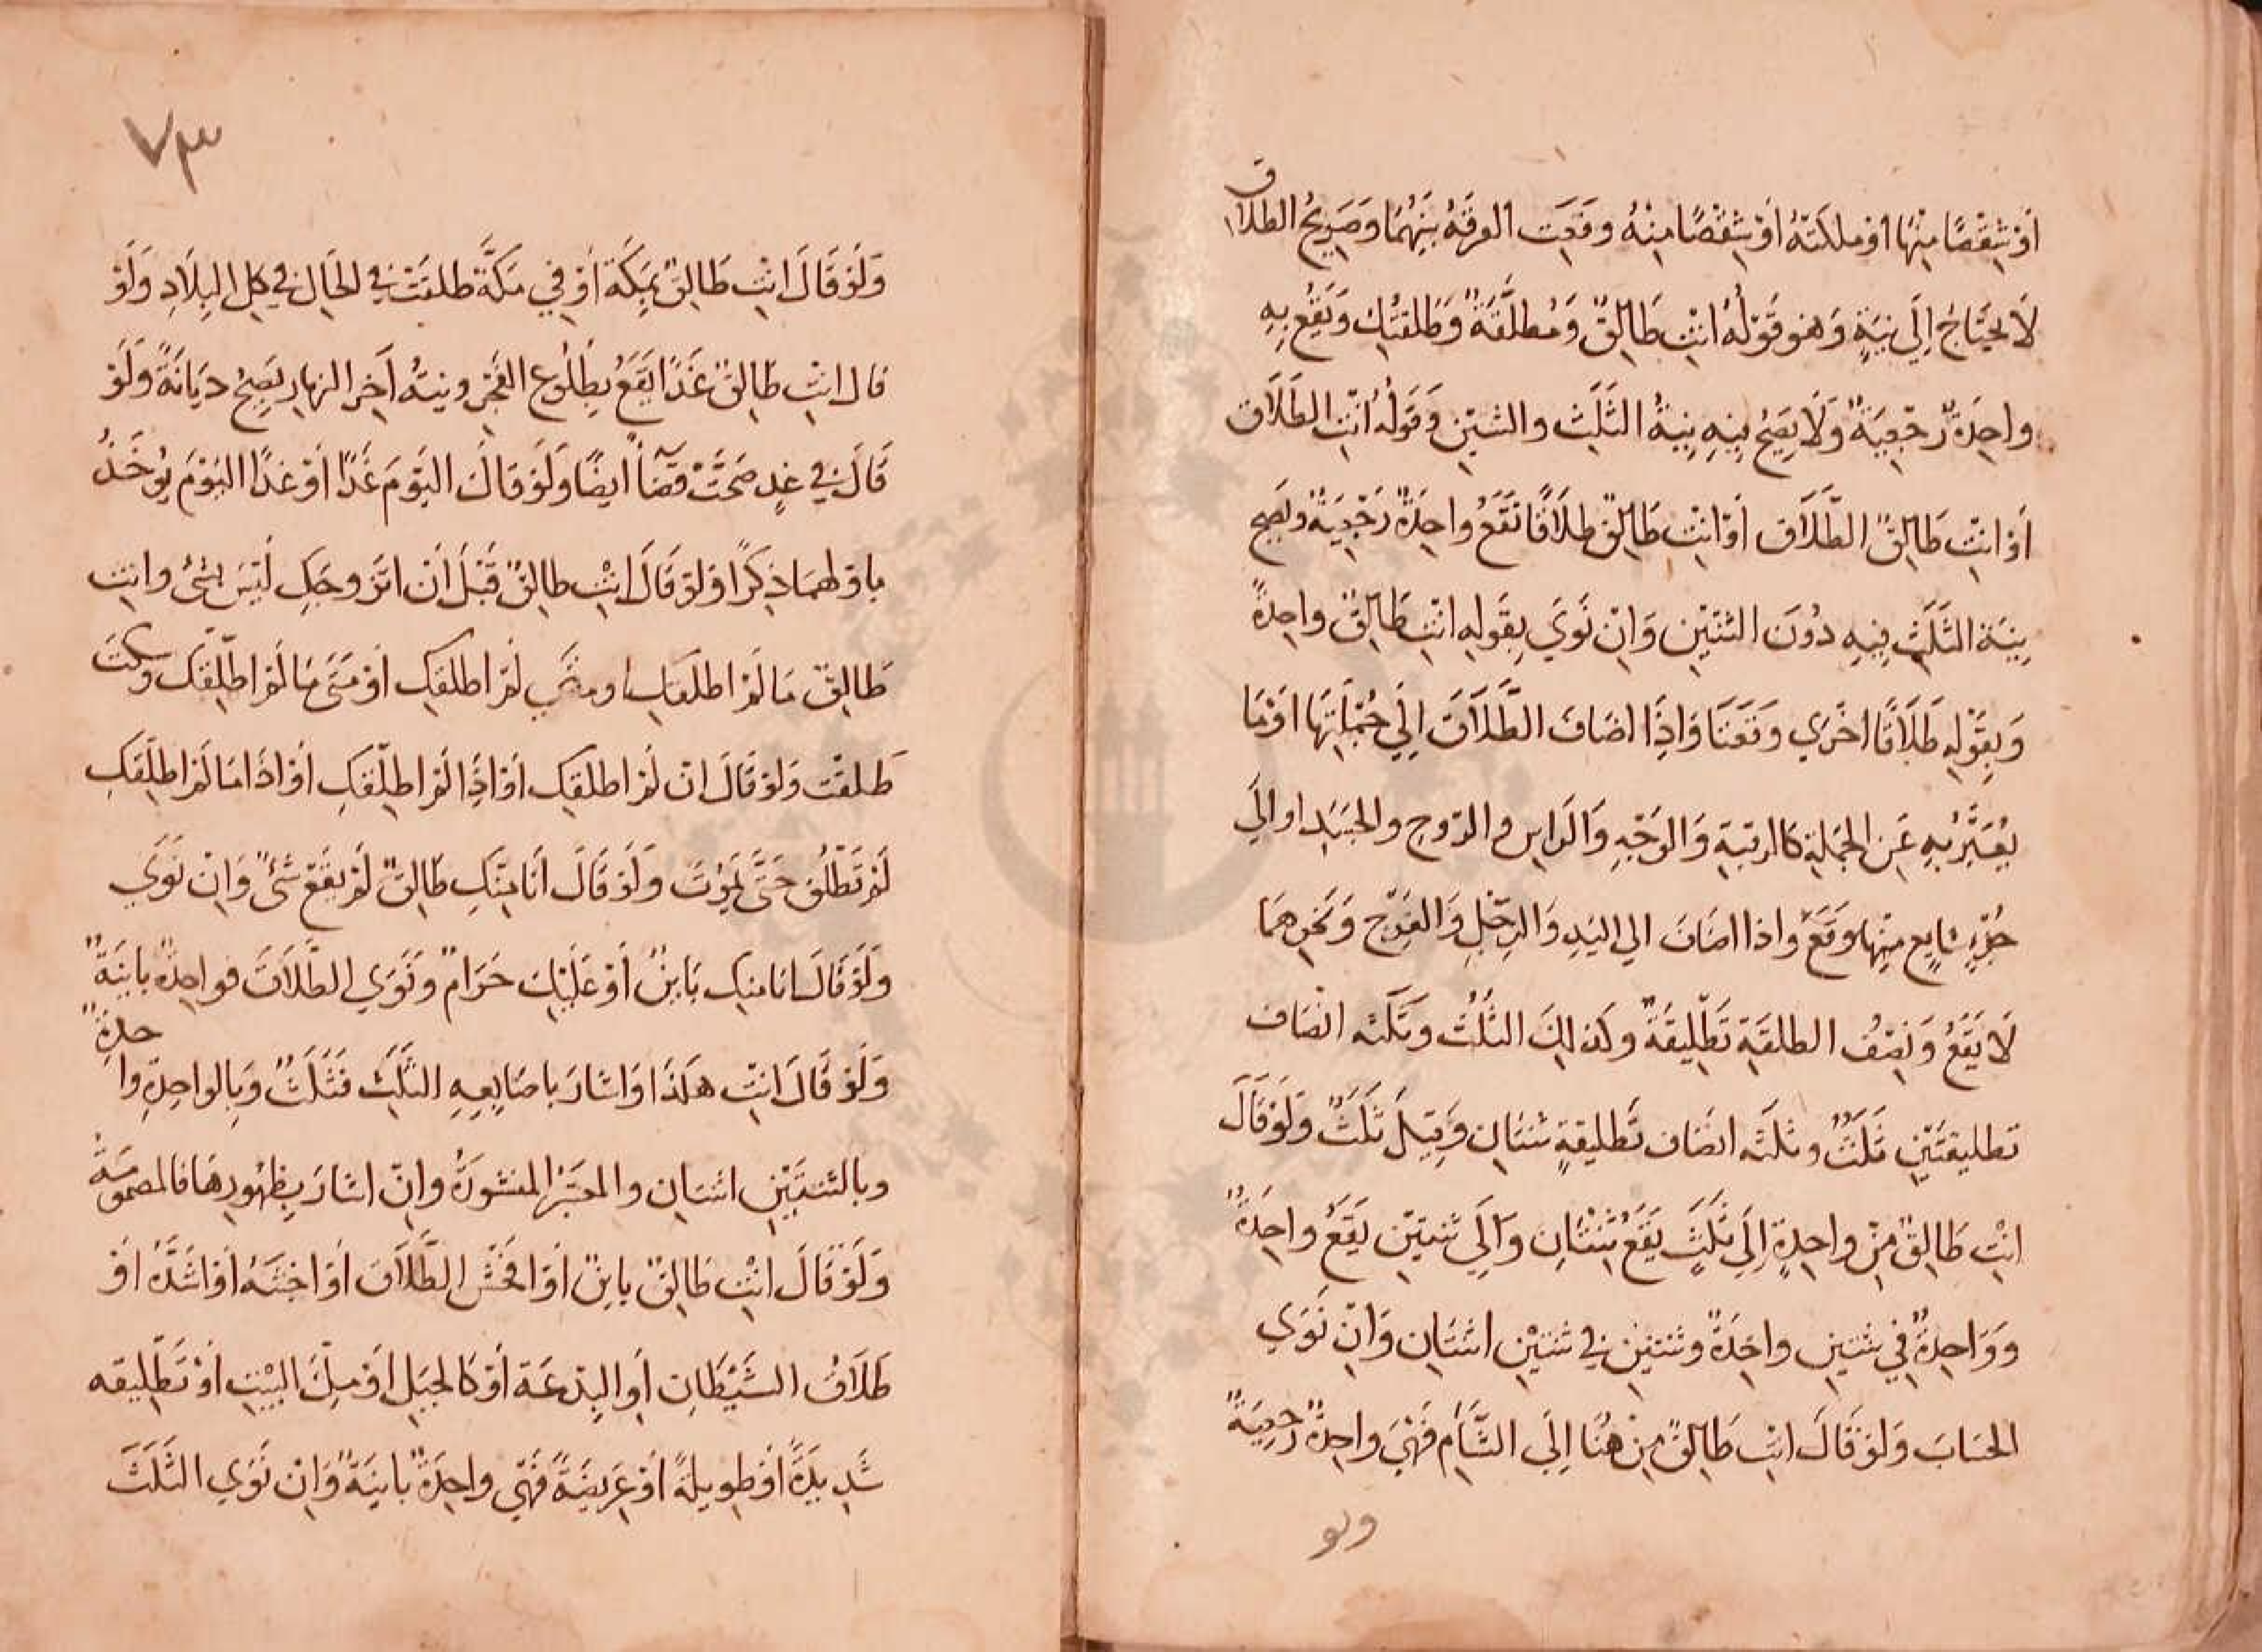 أَوْ شِقْصًا مِنْهَا أوْ ملكَتهُ أَوْ شِقْصًا مِنْهُ وقعَت الفرقَةُ بَيْنَهُمَا وَصَرِيحُ الطلاق
لَا يحتَاجُ إِلَى نيَةٍ وَهو قَوْلهُ انْتِ طَالِقٌ وَمُطَلَّقَةٌ وَطَلقتُكِ وَيَقَعُ بِهِ
واحِدَةٌ رَجْعِيَةٌ وَلَا يَصِحُّ فِيهِ نِيَةُ الثَلَثِ والثنتيْنِ وَقولُهُ انْتِ الطَلَاق
أَوْ انْتِ طَالِقٌ الطَّلَاق أوْ انْتِ طَالِقٌ طلَاقًا تقَعُ واحِدَةٌ رَجْعِيَةٌ وتصِح
نِيَة الثَلَثِ فِيهِ دُونَ الثنتيْنِ وَانْ نَوَي بِقَولِهِ انْتِ طَالِقٌ واحِدةً
وَبِقَوْلِهِ طَلَاقًا اخْرَي وَقَعَتَا وَاذَا اضَافَ الطَّلَاقَ اِلَي جُمْلَتِهَا اوْ مَا
يُعَبَّرُ بِهِ عَنِ الجملةِ كَالرقبَةِ وَالوَجْهِ وَالرَاسِ والرّوحِ والجَسَدِ او الَي
جُزْءٍ شَايعٍ مِنْهَا وَقَعَ واذا اضَافَ الي اليَدِ وَالرِجْلِ وَالفَرْجِ وَنَحْوِهمَا
لَا يَقَعُ وَنِصْفُ الطلقَةِ تَطْلِيقَةٌ وَكَذلِكَ الثُلُثُ وثَلَثه انْصَاف
تطليقتَيْنِ ثَلَثٌ وثلَثَه انصَاف تَطليقةٍ ثنتَان وَقِيلَ ثَلَثٌ وَلَوْ قَالَ
انْتِ طَالِقٌ مِنْ واحِدةٍ اِلَي ثَلَثٍ يَقَعُ ثِنْتَانِ وَالَي ثنتيْنِ يَقَعُ واحِدَةٌ
وَوَاحِدةٌ فِي ثنتينِ واحَدَةٌ وثنتيْنِ في ثنتيْنِ اثنتَان وَانْ نَوَي
الحسَابَ وَلوْ قَالَ انْتِ طَالِقٌ مِنْ هُنَا اِلَي الشَّام فَهْيَ واحِدةٌ رَجْعِيَةٌ
ولو
٧٣
وَلَوْ قَالَ انْتِ طَالِقٌ بمَكَّةَ أَوْ فِي مَكَّةَ طلقَتْ في الحَالِ في كلِ البِلَادِ وَلَوْ
قال انْتِ طَالِقٌ غَدًا يقَعُ بِطُلُوعِ الفَجْرِ ونيتهُ آخِر النهارِ يَصِحُّ ديَانَةً وَلَوْ
قَالَ في غدٍ صَحَّتْ قضَآءً ايضًا وَلَوْ قَالَ اليَوْمَ غَدًا أوْ غدًا اليَوْمَ يُوْخَذُ
باولهمَا ذِكرًا ولو قَالَ انْتِ طالِقٌ قَبْلَ أن اتَزَوجَكِ لَيْسَ بشيْ وانت
طَالِقٌ مَا لَمْ اطلقكِ او متَي لَمْ اطلقكِ أوْ مَتَى مَا لَمْ اطَلِّقْك وسكت
طَلقتْ وَلَوْ قَالَ ان لَمْ اطلقكِ أوْ اذَا لَمْ اطلّقكِ أوْ اذَا مَا لَمْ اطلِقكِ
لَمْ تَطْلُق حَتَّى يَمُوْتَ وَلَوْ قَالَ أَنَا مِنْكِ طَالِقٌ لَمْ يقَعْ شَيْءٌ وَانْ نَوَي
وَلَوْ قَالَ انا منكِ بَاينٌ أَوْ عَلَيْكِ حَرَامٌ وَنَوَي الطَّلَاقَ فواحِدةٌ باينَةٌ
وَلَوْ قَالَ انْتِ هكَذَا وَاشارَ باصَابِعِهِ الثَّلَثِ فَثَلَثٌ وَبِالواحِدةِ واحدةٌ
وبالثنتَيْنِ اثنتَان والمعتبَرُ المنشورَةُ وانْ اشارَ بِظهُورِهَا فالمضمومَةُ
وَلَوْ قَالَ انْتِ طَالِقٌ باينٌ أوْ افحَشَ الطَّلَاقِ أوْ اخبثَهُ أوْ اشَدَّهُ أوْ
طَلَاقُ الشَيْطَانِ أوِ البِدْعَة أوْ كالجبَلِ أوْ مِلْءَ البَيْتِ أوْ تَطْلِيقه
شَدِيدَةً أوْ طويلةً أوْ عَرِيضَةً فَهْي واحِدَةٌ باينَةٌ وَانْ نَوَي الثَلَثَ